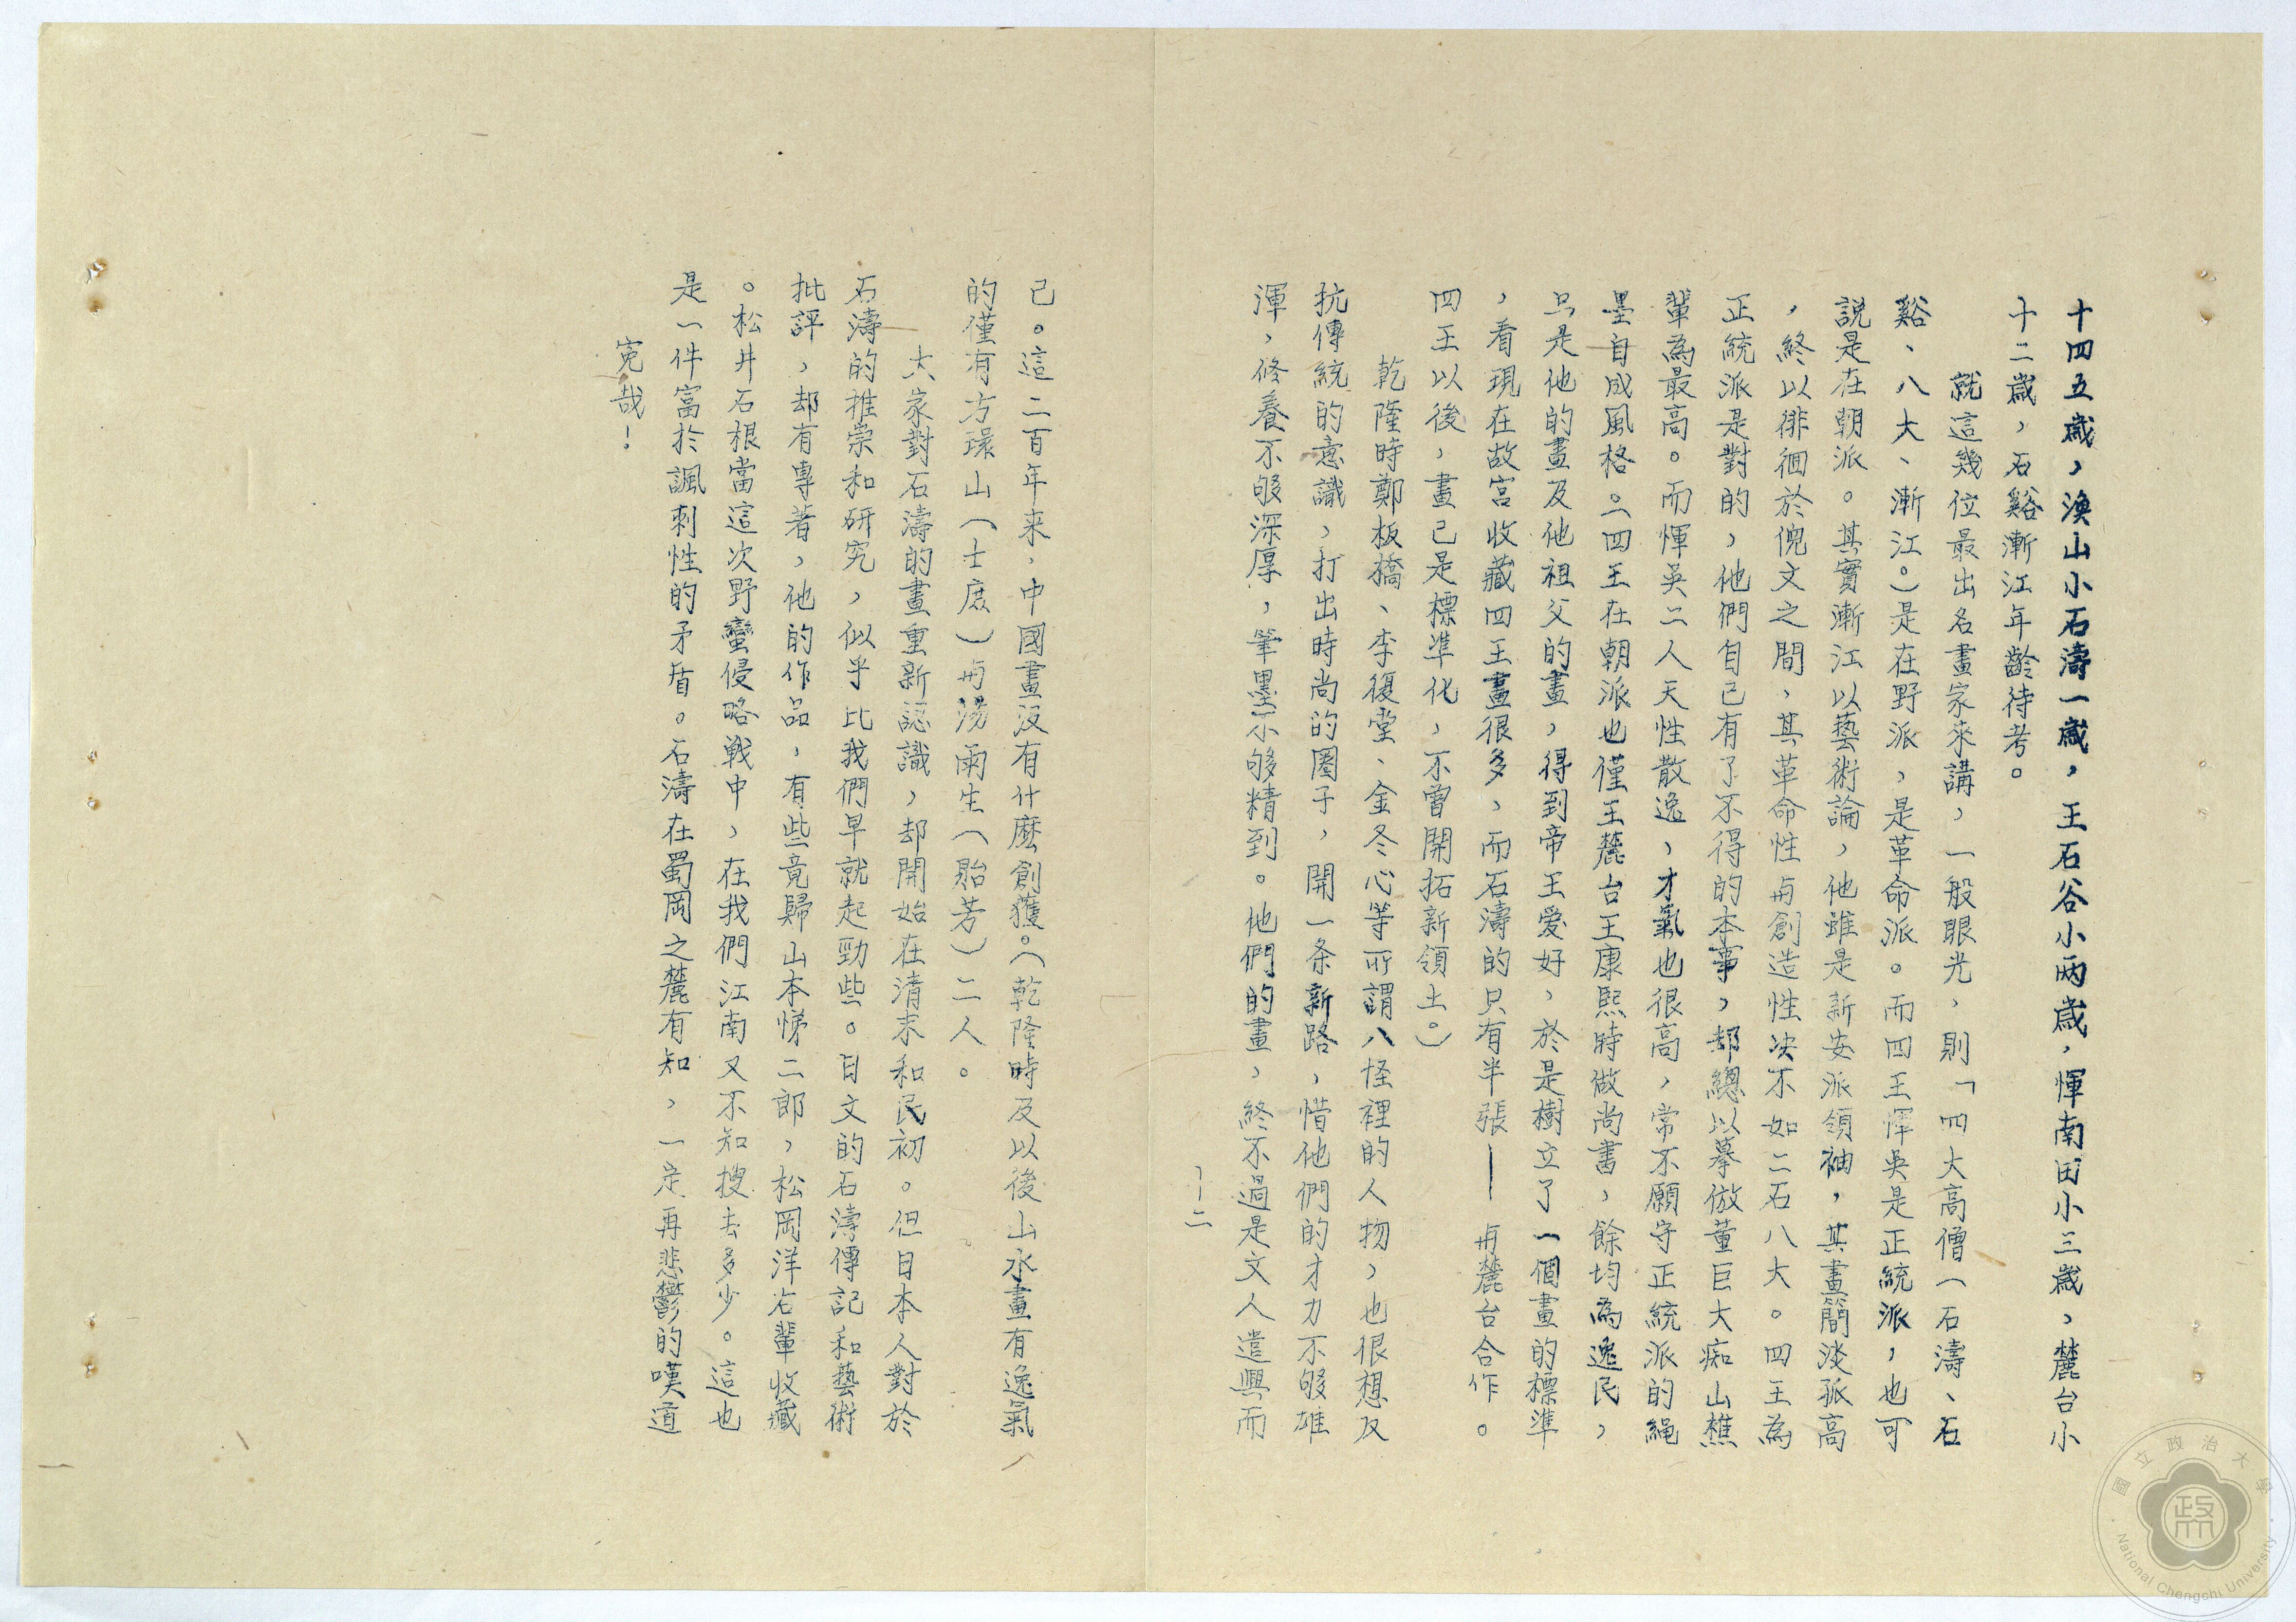 十四五歲，漁山小石濤一歲，王石谷小兩歲，惲南田小三歲，麓台小
十二歲，石谿漸江年齡待考。
就這幾位最出名畫家來講，一般眼光，則「四大高僧（石濤、石
谿、八大、漸江。）是在野派，是革命派。而四王惲吳是正統派，也可
說是在朝派。其實漸江以藝術論，他雖是新安派領袖，其畫簡淡孤高
，終以徘徊於倪文之間，其革命性與創造性決不如二石八大。四王為
正統派是對的，他們自己有了不得的本事，却總以摹倣董巨大痴山樵
輩為最高。而惲吳二人天性散逸，才氣也很高，常不願守正統派的繩
墨自成風格。（四王在朝派也僅王麓台王康熙時做尚書，餘均為逸民，
只是他的畫及他祖父的畫，得到帝王愛好，於是樹立了一個畫的標準
，看現在故宮收藏四王畫很多，而石濤的只有半張——與麓台合作。
四王以後，畫已是標準化，不曾開拓新領土。）
乾隆時鄭板橋、李復堂、金冬心等所謂八怪裡的人物，也很想反
抗傳統的意識，打出時尚的圈子，開一条新路，惜他們的才力不够雄
渾，修養不够深厚，筆墨不够精到。他們的畫，終不過是文人遣興而
十二
已。這二百年来，中國畫没有什麼創獲。（乾隆時及以後山水畫有逸氣
的僅有方環山（士庶）與湯雨生（貽芳）二人。
大家對石濤的畫重新認識，却開始在清末和民初。但日本人對於
石濤的推崇和研究，似乎比我們早就起勁些。日文的石濤傳記和藝術
批評，却有專著，他的作品，有些竟歸山本悌二郎，松岡洋右輩收藏
。松井石根當這次野蠻侵略戰中，在我們江南又不知搜去多少。這也
是一件富於諷刺性的矛盾。石濤在蜀岡之麓有知，一定再悲鬱的嘆道
冤哉！
國立政治大學
National Chengchi University